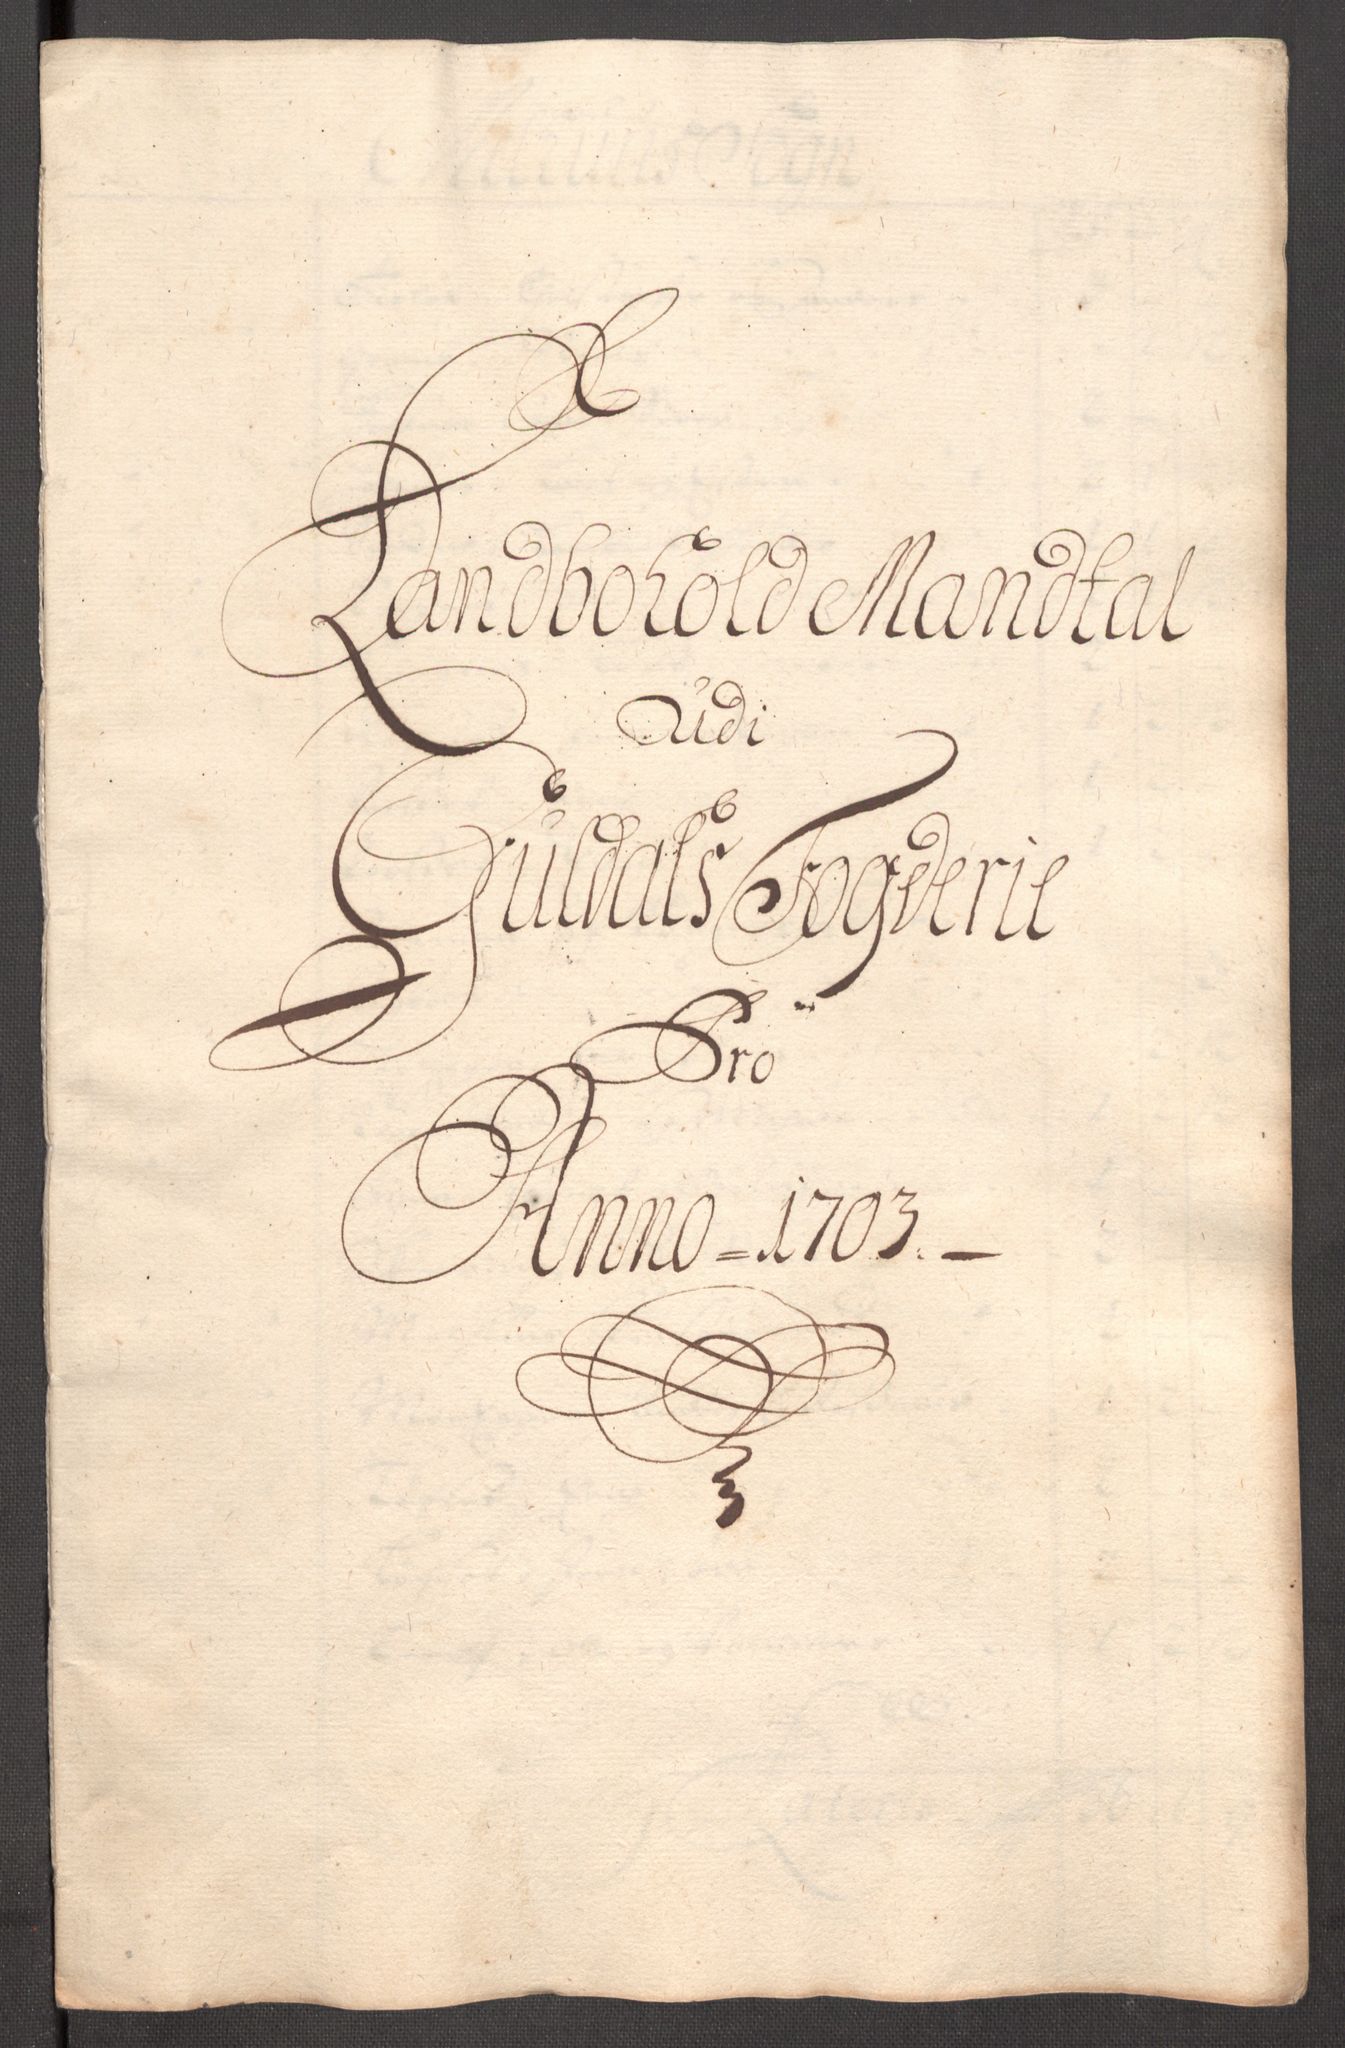 Landbohold Mandtal
Udi
Guldals Fogderie
Pro
Anno = 1703. —